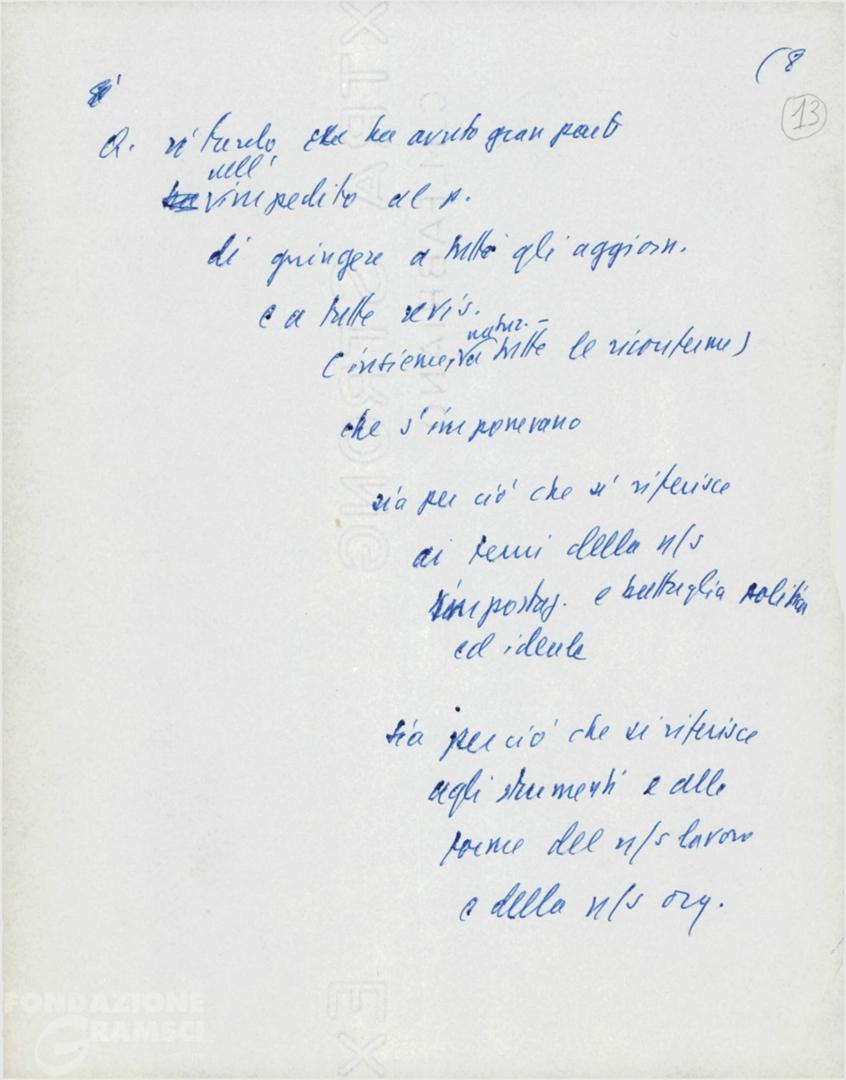 (8
13
Q. ritardo che ha avuto gran parte
nell'
impedito al p.
di giungere a tutti gli aggiorn.
e a tutte revis.
natur. -
(insieme, a tutte le riconferme)
che s'imponevano
sia per ciò che si riferisce
ai temi della n/s
impostaz. e battaglia politica
ed ideale
sia per ciò che si riferisce
agli strumenti e alle
forme del n/s lavoro
e della n/s org.
EXTRA STRONG
EX
FONDAZIONE
GRAMSCI